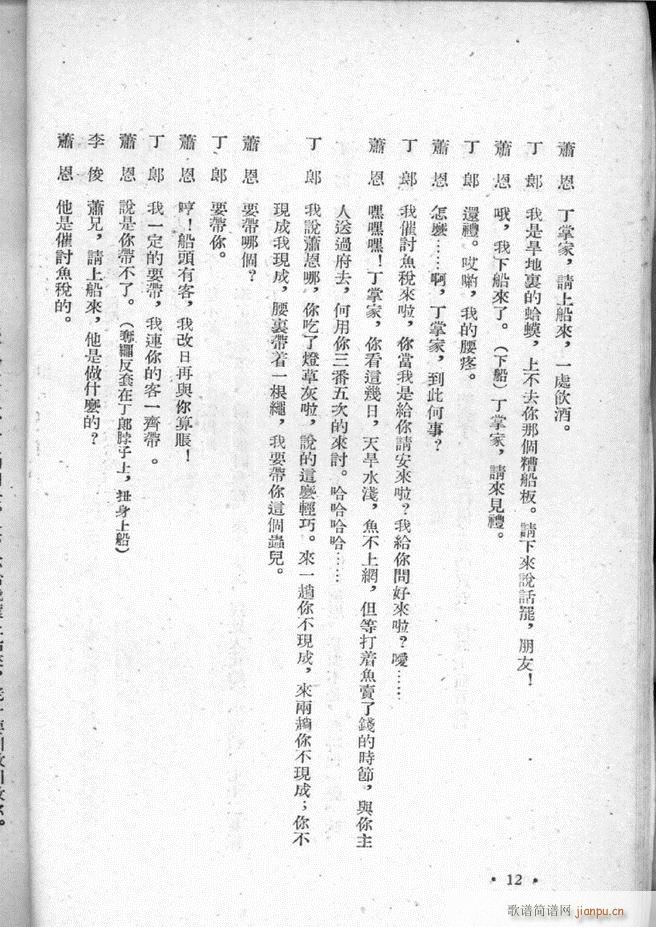 蕭　恩　丁掌家，請上船來，一處飲酒。
丁　郎　我是旱地裏的蛤蟆，上不去你那個糟船板。請下來說話罷，朋友！
蕭　恩　哦，我下船來了。（下船）丁掌家，請來見禮。
丁　郎　還禮。哎喲，我的腰疼。
蕭　恩　怎麼……啊，丁掌家，到此何事？
丁　郎　我催討魚稅來啦，你當我是給你請安來啦？我給你問好來啦？噯……
蕭　恩　嘿嘿嘿！丁掌家，你看這幾日，天旱水淺，魚不上網，但等打着魚賣了錢的時節，與你主
人送過府去，何用你三番五次的來討。哈哈哈哈……
丁　郎　我說蕭恩哪，你吃了燈草灰啦，說的這麼輕巧。來一趟你不現成，來兩趟你不現成；你不
現成我現成，腰裏帶着一根繩，我要帶你這個蟲兒。
蕭　恩　要帶哪個？
丁　郎　要帶你。
蕭　恩　哼！船頭有客，我改日再與你算賬！
丁　郎　我一定的要帶，我連你的客一齊帶。
蕭　恩　說是你帶不了。（奪繩反套在丁郎脖子上，扭身上船）
李　俊　蕭兄，請上船來，他是做什麼的？
蕭　恩　他是催討魚稅的。
• 12 •
歌谱简谱网
jianpu.cn